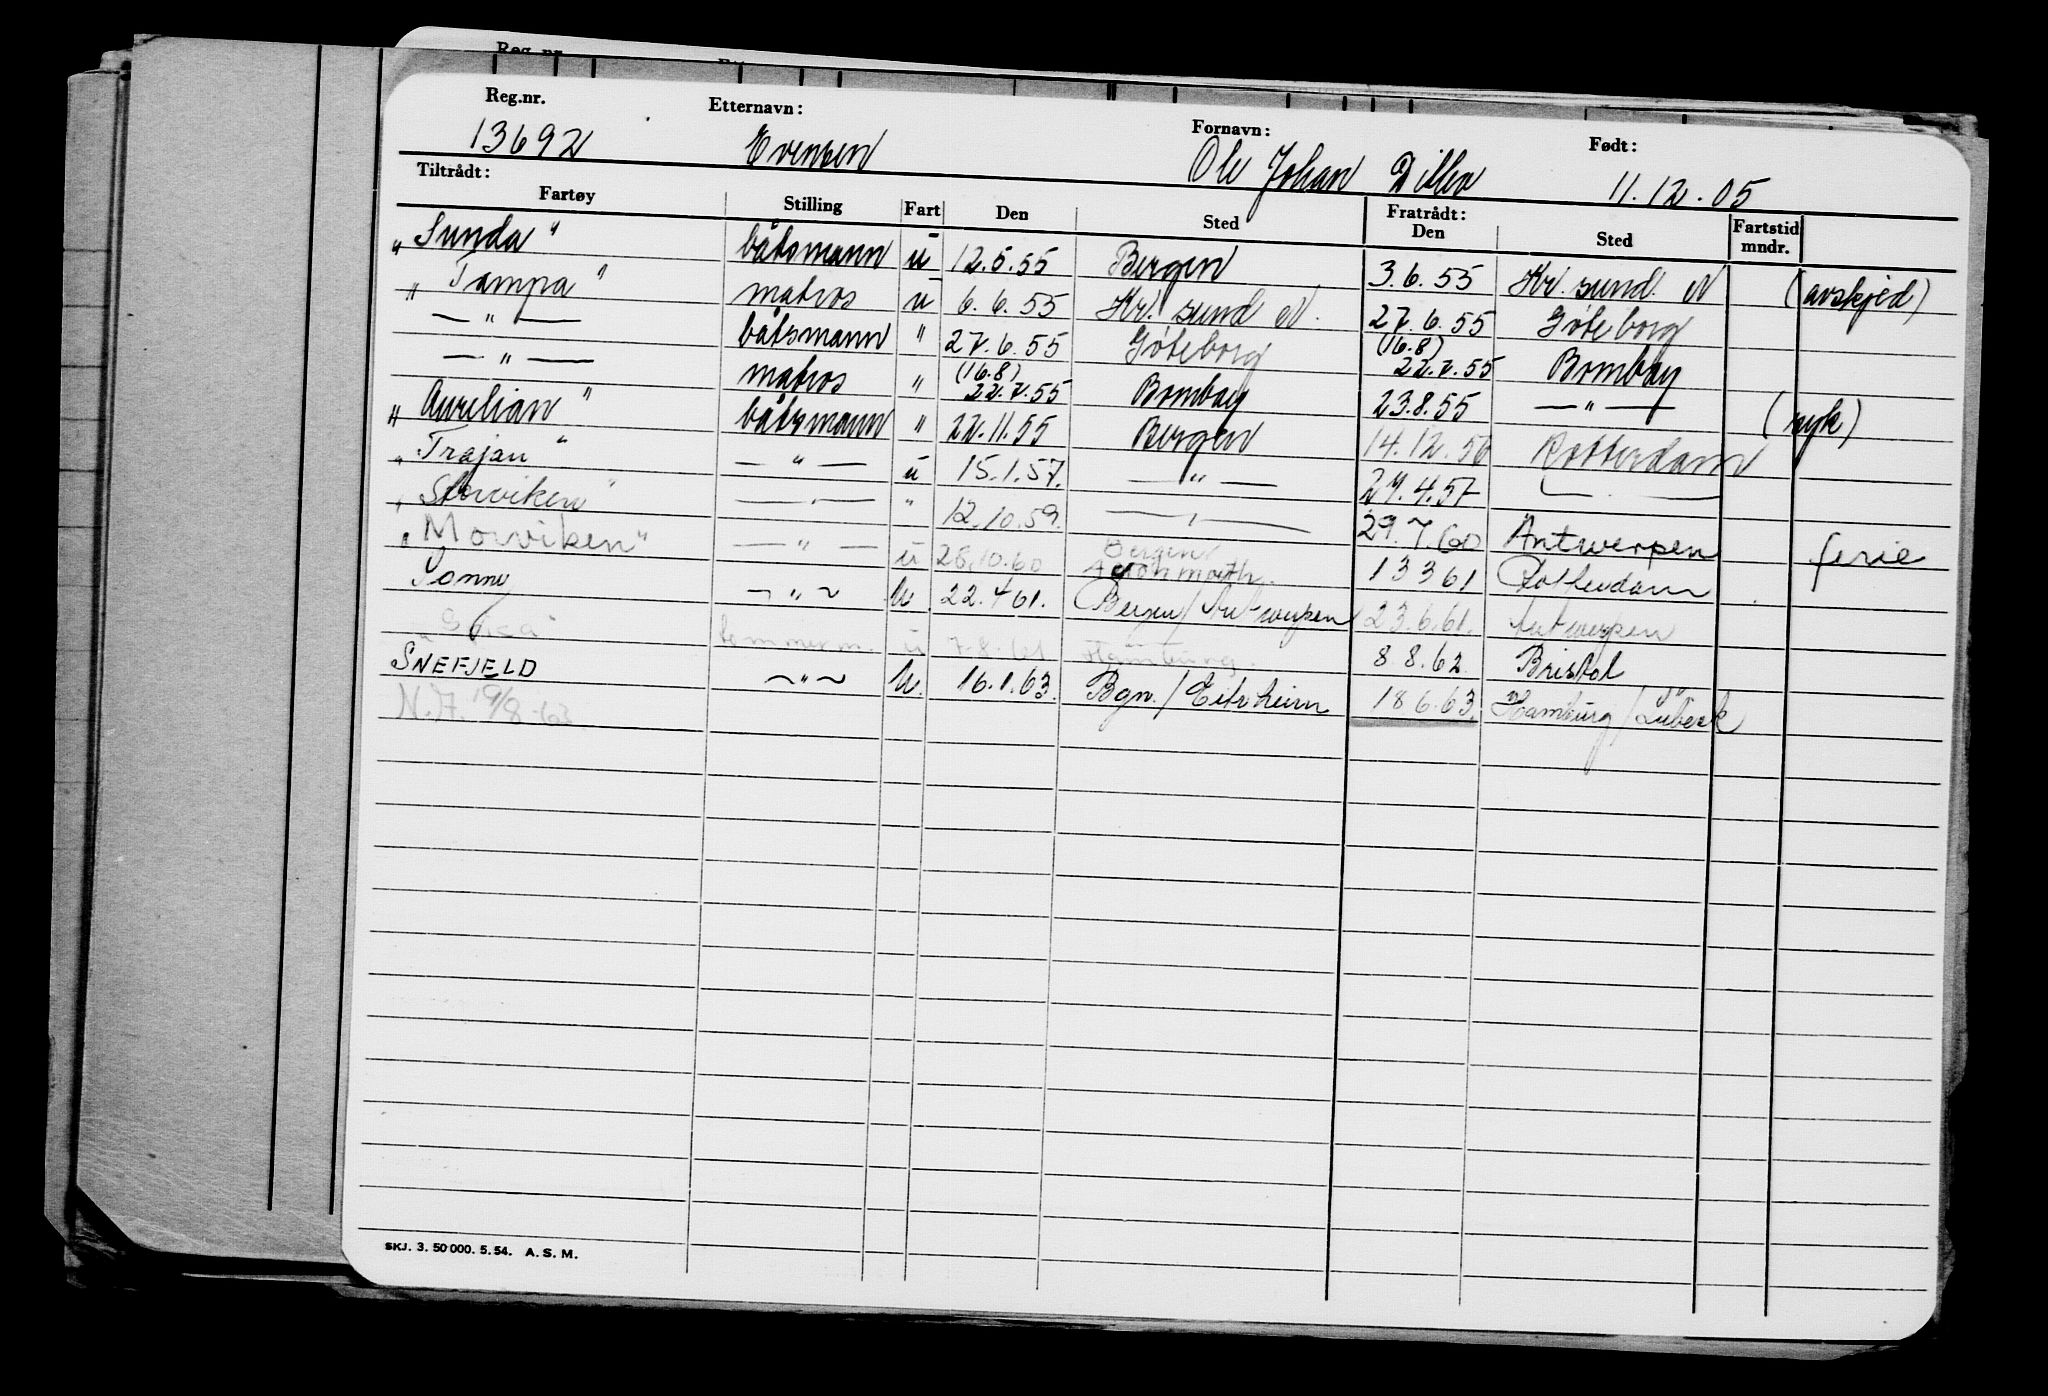 Reg.nr.
Reg.nr. Etternavn: Fornavn: Født:
13692 Evensen Ole Johan 11.12.05
Tiltrådt: Fratrådt:
Fartøy Stilling Fart Den Sted Den Sted Fartstid mndr.
"Sunda" båtsmann u 12.5.55 Bergen 3.6.55 Kr.sund. N (avskjed)
"Tampa" matros u 6.6.55 Kr.sund N. 27.6.55 Göteborg
— " — båtsmann " 27.6.55 Göteborg (16.8) 22.7.55 Bombay
— " — matros " (16.8) 22.7.55 Bombay 23.8.55 — " — (syk)
"Aurelian" båtsmann " 22.11.55 Bergen 14.12.56 Rotterdam
"Trajan" — " — u 15.1.57. — " — 29.4.57 — " —
"Storviken" — " — " 12.10.59. — " — 29.7.60 Antwerpen ferie
"Morviken" — " — u 26.10.60 Bergen Avonmouth. 13 3 61 Rotterdam
Sonny ~ " ~ U. 22.4 61. Bergen/Antwerpen 23.6.61. Antwerpen
tømmerm. u 7.8.61 Hamburg. 8.8.62. Bristol
SNEFJELD ~ " ~ U. 16.1.63. Bgn./Eitrheim 18.6.63. Hamburg/Lübeck
N.F. 19/8-63
SKJ. 3. 50 000. 5. 54. A. S. M.